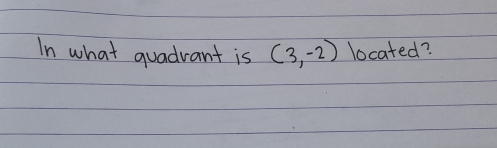 In what quadrant is (3,-2) located?